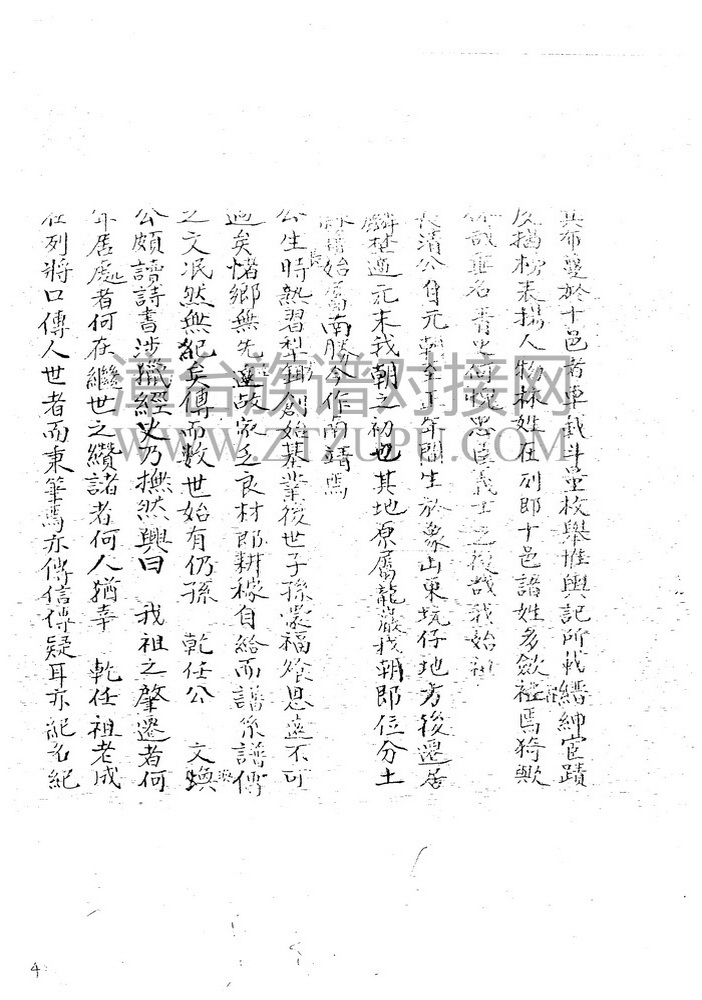 其布蔓於十邑者車載斗量枚舉惟輿記所載縉紳宦蹟
及揭榜表揚人物林姓在列即十邑諸姓多斂衽焉猗歟
垂名青史 忠臣義士之後哉我始祖
長清公自元朝至正年間生於象山東坑仔地方後遷居
麟埜適元末我朝之初也其地原屬龍巖我朝即位分土
始屬南勝今作南靖焉
公生時熟習犁鋤創始基業後世子孫蒙福飲恩遠不可
遡矣惜鄉無先達故家乏良材即耕稼自給而譜系譜傳
之文泯然無紀矣傳而數世始有仍孫 乾任公 文煥
公頗讀詩書涉獵經史乃撫然興曰 我祖之肇遷者何
年居處者何在繼世之纘諸者何人猶幸 乾任祖老成
在列將口傳人世者而秉筆焉亦傳信傳疑耳亦紀名紀
4
漳台族谱对接网
WWW.ZTZUPU.COM